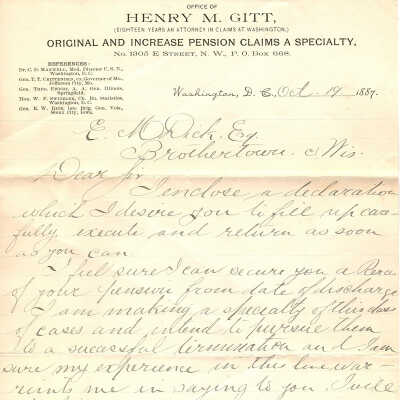 OFFICE OF
HENRY M. GITT,
(EIGHTEEN YEARS AN ATTORNEY IN CLAIMS AT WASHINGTON.)
ORIGINAL AND INCREASE PENSION CLAIMS A SPECIALTY,
No. 1305 E STREET, N. W., P. O. BOX 668.
REFERENCES:
Washington, D. C.
Jefferson City, Mo.
Springfield.
Washington, D. C.
Washington, D. C., Oct. 19 1887.
E. M. Dick, Esq.
Brothertown, Wis.
Dear Sir
I enclose a declaration
which I desire you to fill up care-
fully execute and return as soon
as you can.
I feel sure I can secure you a
of your pension from date of discharge
I am making a specialty of this class
of cases and intend to pursue them
to a sucessful termination and I am
sure my experience in this line war-
rants me in saying to you I will